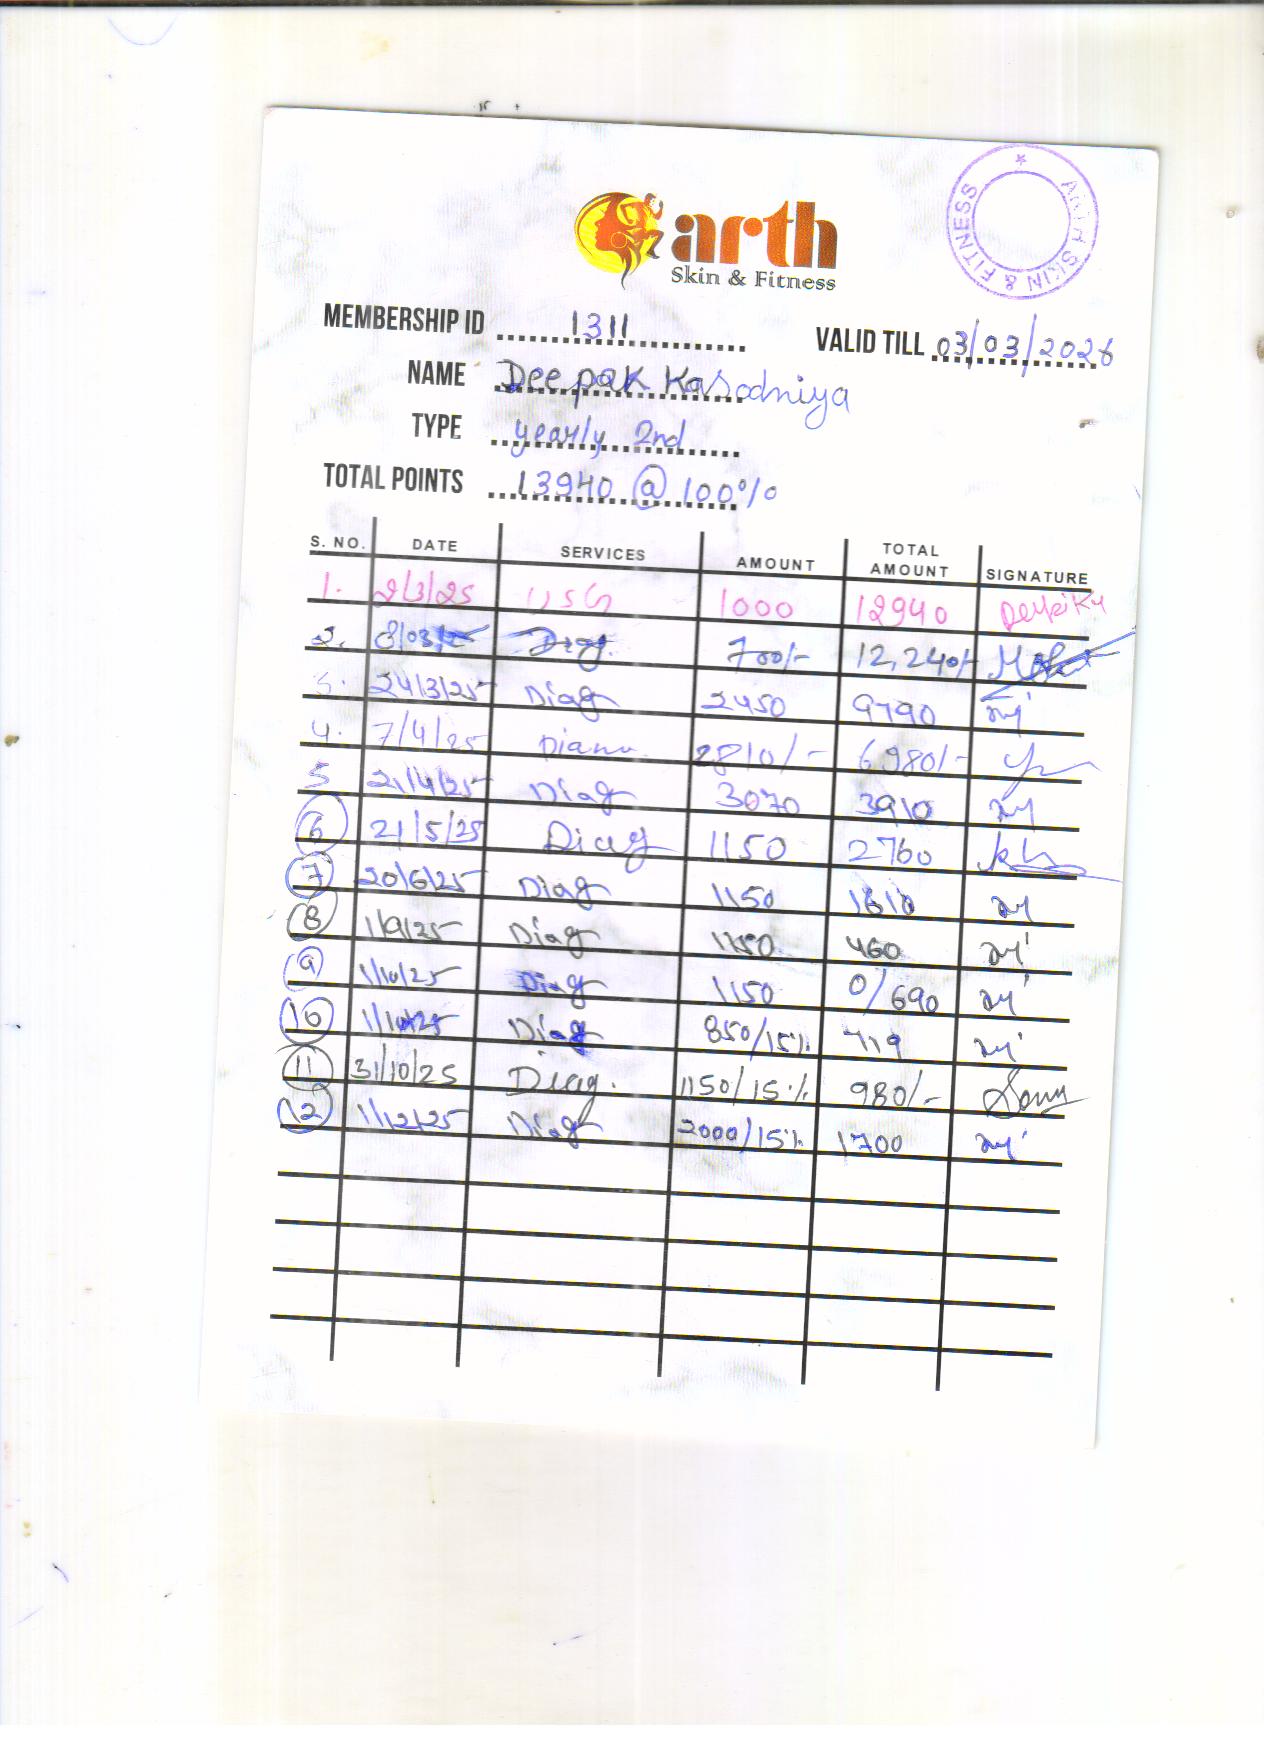 arth
Skin & Fitness
ARTH SKIN & FITNESS
MEMBERSHIP ID 1311 VALID TILL 03/03/2026
NAME Deepak Kasodniya
TYPE yearly 2nd
TOTAL POINTS 13940 @ 100%
S. NO. DATE SERVICES AMOUNT TOTAL AMOUNT SIGNATURE
1. 2/3/25 USG 1000 12940
2. 8/03/25 Diag. 700/- 12,240/-
3. 24/3/25 Diag 2450 9790
4. 7/4/25 2810/- 6980/-
5 21/4/25 Diag 3070 3910
6 21/5/25 Diag 1150 2760
7 20/6/25 Diag 1150 1610
8 1/9/25 Diag 1150 460
9 1/10/25 Diag 1150 0/690
10 Diag 850/15% 719
11 31/10/25 Diag. 1150/15% 980/-
12 1/12/25 Diag 2000/15% 1700